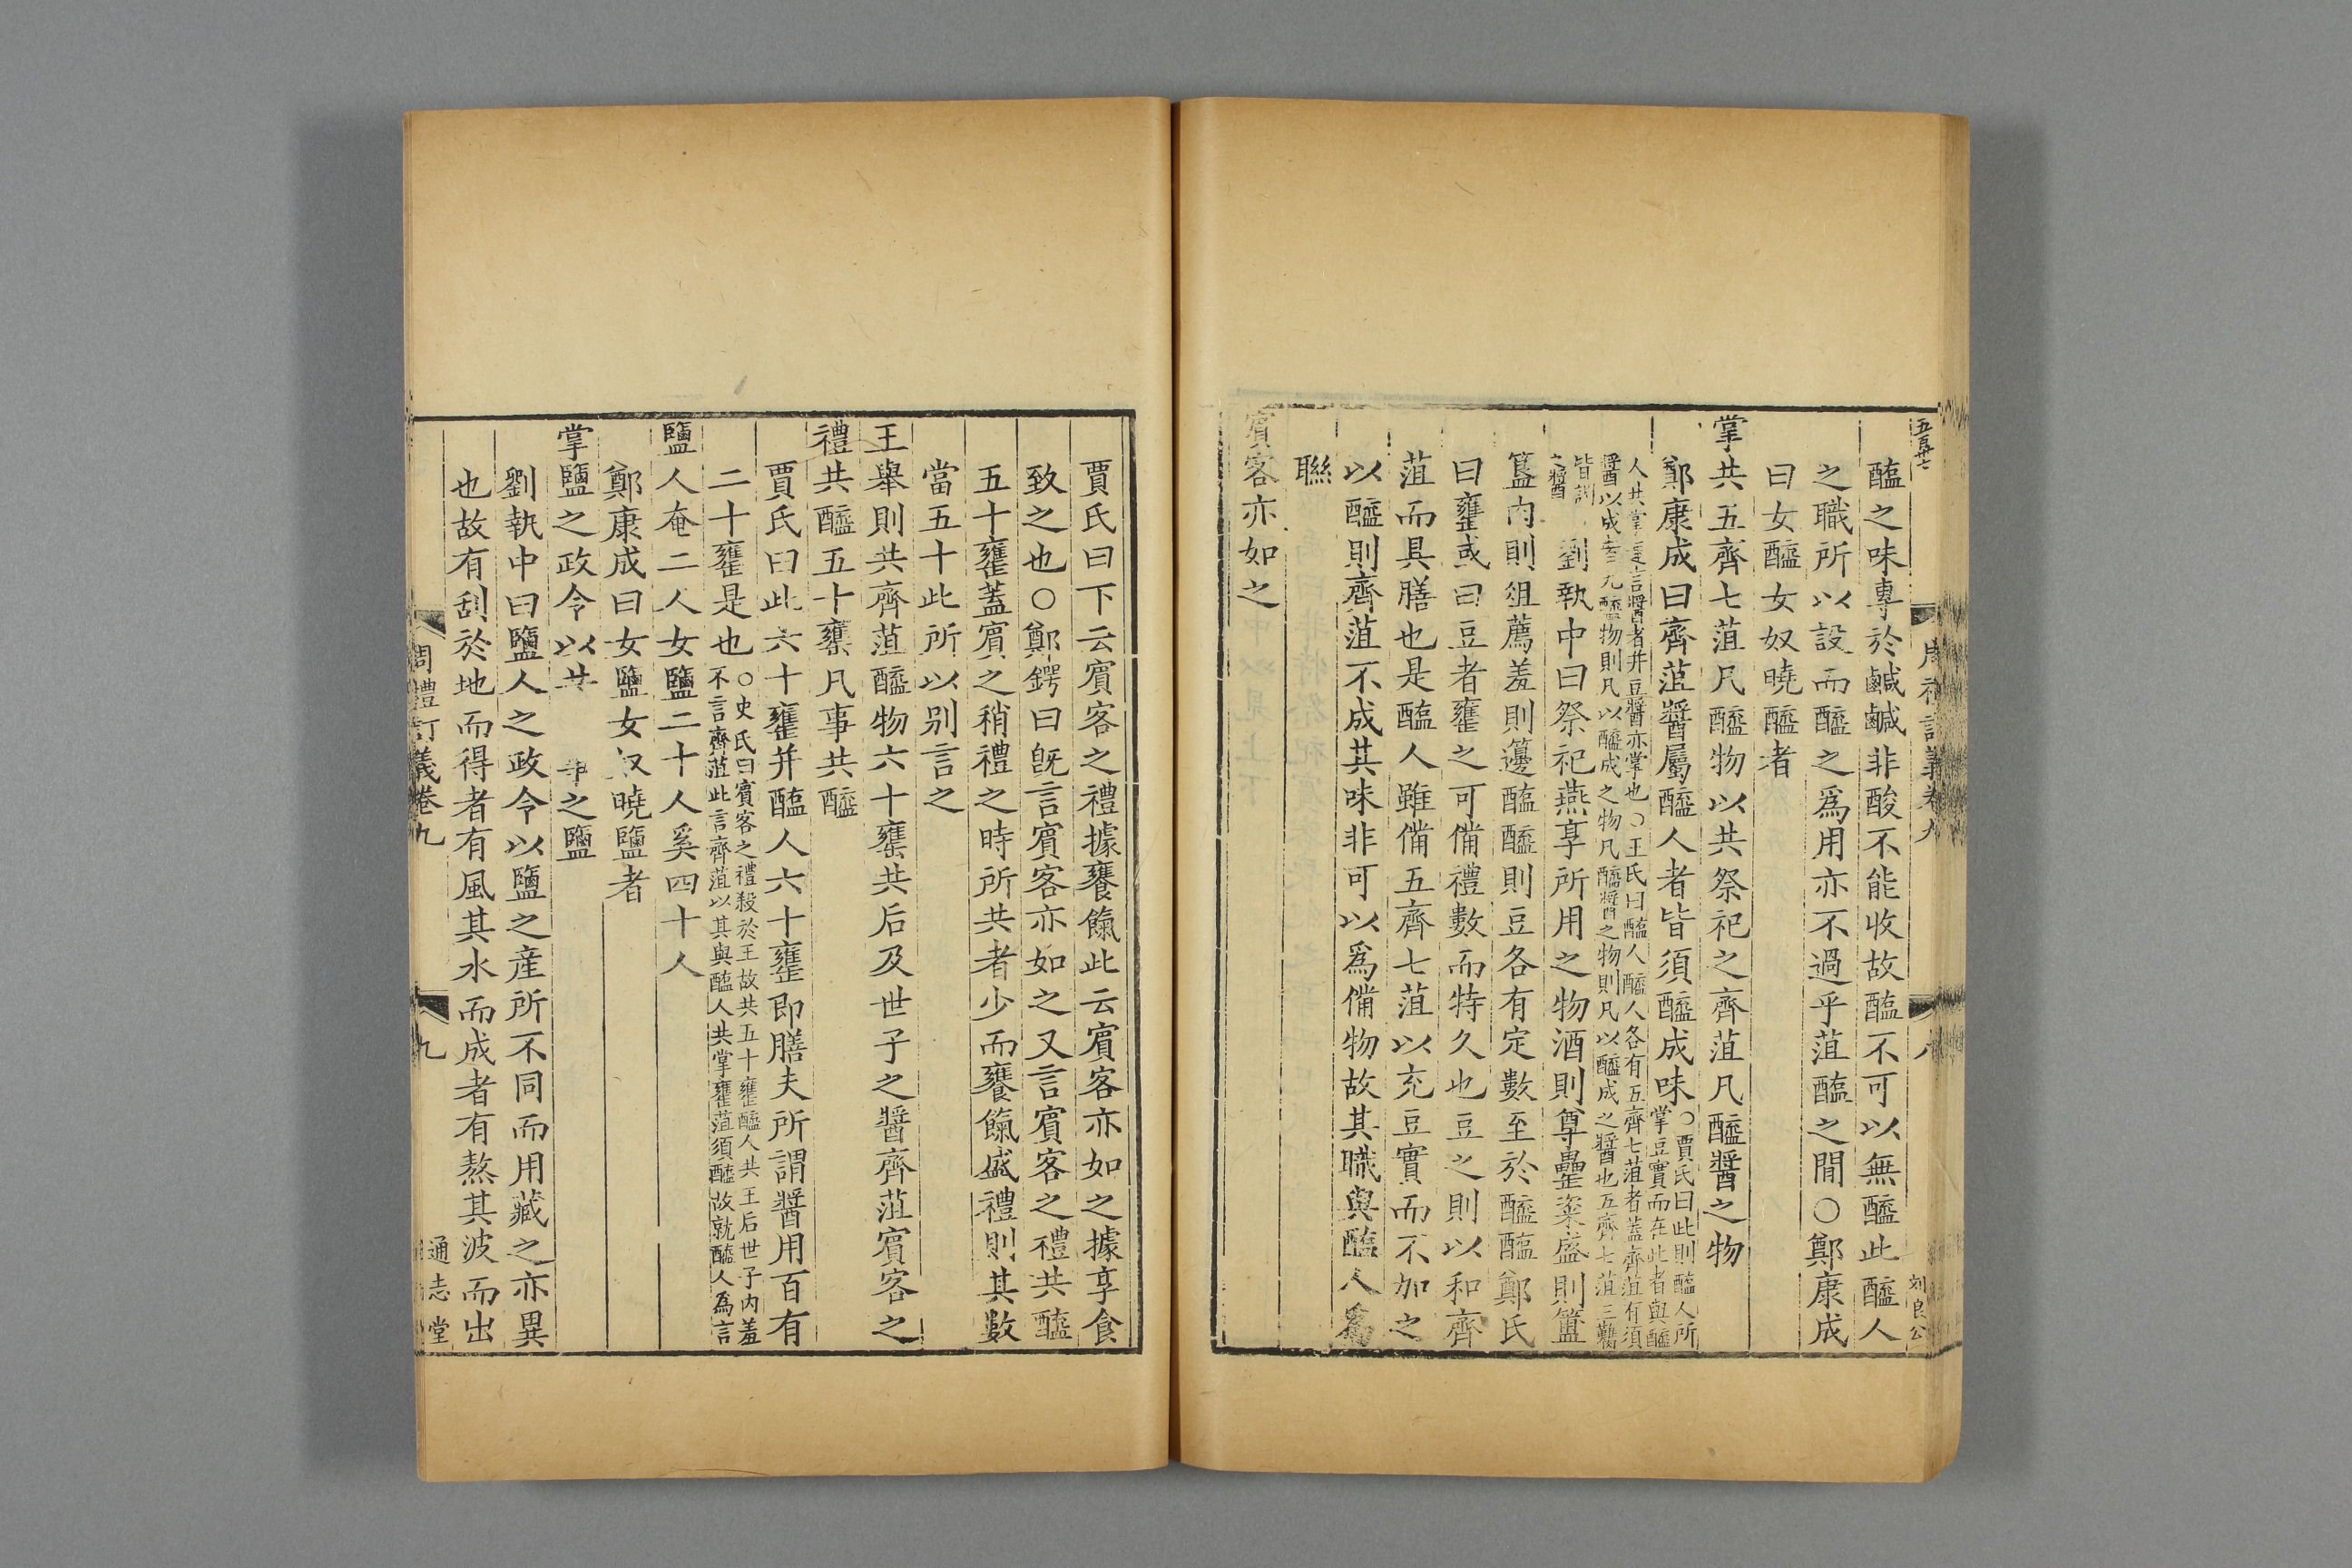 醢之味專於鹹鹹非酸不能收故醢不可以無醯此醯人
之職所以設而醯之爲用亦不過乎菹醢之閒○鄭康成
曰女醯女奴曉醯者
掌共五齊七菹凡醯物以共祭祀之齊菹凡醯醬之物
鄭康成曰齊菹醬屬醯人者皆須醯成味○賈氏曰此則醢人所
掌豆實而在此者與醯
人共掌 言醬者并豆醬亦掌也○王氏曰醢人醯人各有五齊七菹者蓋齊菹有須
醬以成 凡醯物則凡以醯成之物凡醯醬之物則凡以醯成之醬也五齊七菹三臡
皆謂
之醬
劉執中曰祭祀燕享所用之物酒則尊罍粢盛則簠
簋肉則俎薦羞則籩醢醯則豆各有定數至於醯醢鄭氏
曰罋或曰豆者罋之可備禮數而特久也豆之則以和齊
菹而具膳也是醢人雖備五齊七菹以充豆實而不加之
以醯則齊菹不成其味非可以爲備物故其職與醢人爲
聯
賓客亦如之
周禮訂義卷九
八
刘良公
賈氏曰下云賓客之禮據饔餼此云賓客亦如之據享食
致之也○鄭鍔曰旣言賓客亦如之又言賓客之禮共醯
五十罋蓋賓之稍禮之時所共者少而饔餼盛禮則其數
當五十此所以别言之
王舉則共齊菹醯物六十罋共后及世子之醬齊菹賓客之
禮共醯五十罋凡事共醯
賈氏曰此六十罋并醢人六十罋即膳夫所謂醬用百有
二十罋是也○史氏曰賓客之禮殺於王故共五十罋醯人共王后世子内羞
不言齊菹此言齊菹以其與醢人共掌罋菹須醯故就醯人爲言
鹽人奄二人女鹽二十人奚四十人
鄭康成曰女鹽女奴曉鹽者
掌鹽之政令以共 事之鹽
劉執中曰鹽人之政令以鹽之産所不同而用藏之亦異
也故有刮於地而得者有風其水而成者有熬其波而出
周禮訂義卷九
九
通志堂